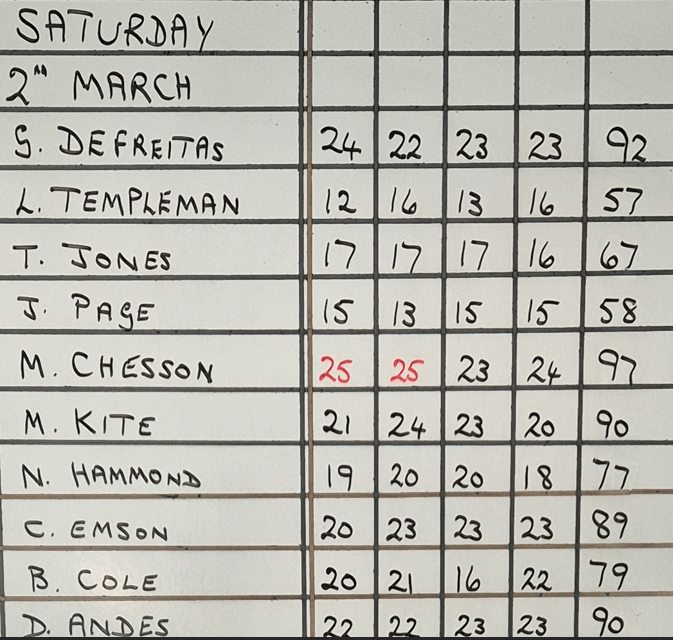 SATURDAY
2ND MARCH
G. DEFREITAS 24 22 23 23 92
L. TEMPLEMAN 12 16 13 16 57
T. JONES 17 17 17 16 67
J. PAGE 15 13 15 15 58
M. CHESSON 25 25 23 24 97
M. KITE 21 24 23 20 90
N. HAMMOND 19 20 20 18 77
C. EMSON 20 23 23 23 89
B. COLE 20 21 16 22 79
D. ANDES 22 22 23 23 90